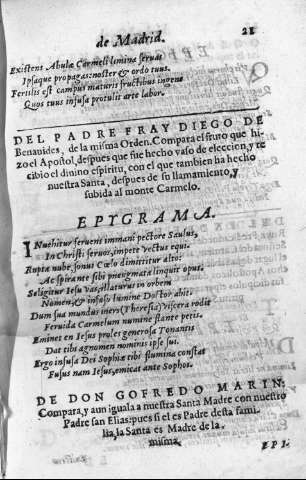 de Madrid. 21
Existens Abulæ Carmeli limina seruas
Ipsaque propagas: noster & ordo tuus.
Fertilis est campus maturis fructibus ingens
Quos tuus infusa protulit arte labor.
DEL PADRE FRAY DIEGO DE
Benauides, de la misma Orden. Compara el fruto que hi-
zo el Apostol, despues que fue hecho vaso de eleccion, y re
cibio el diuino espiritu, con el que tambien ha hecho
nuestra Santa, despues de su llamamiento, y
subida al monte Carmelo.
EPYGRAMA.
INuehitur feruens immani pectore Saulus,
In Christi seruos, impete vectus equi.
Rupta nube, sonus Cœlo dimittitur alto:
Ac spirante sibi pneugmata linquit opus.
Seligitur Iesu vas, illaturus in orbem
Nomen, & infuso lumine Doctor abit.
Dum sua mundus iners (Theresia) viscera rodit
Feruida Carmelum numine flante petis.
Eminet en Iesus proles generosa Tonantis
Dat tibi agnomen nominis ipse sui.
Ergo infusa Dei Sophiæ tibi flumina constat
Fusus nam Iesus, emicat ante Sophos.
DE DON GOFREDO MARIN:
Compara, y aun iguala a nuestra Santa Madre con nuestro
Padre san Elias: pues si el es Padre desta fami
lia, la Santa es Madre de la
misma.
EPI-